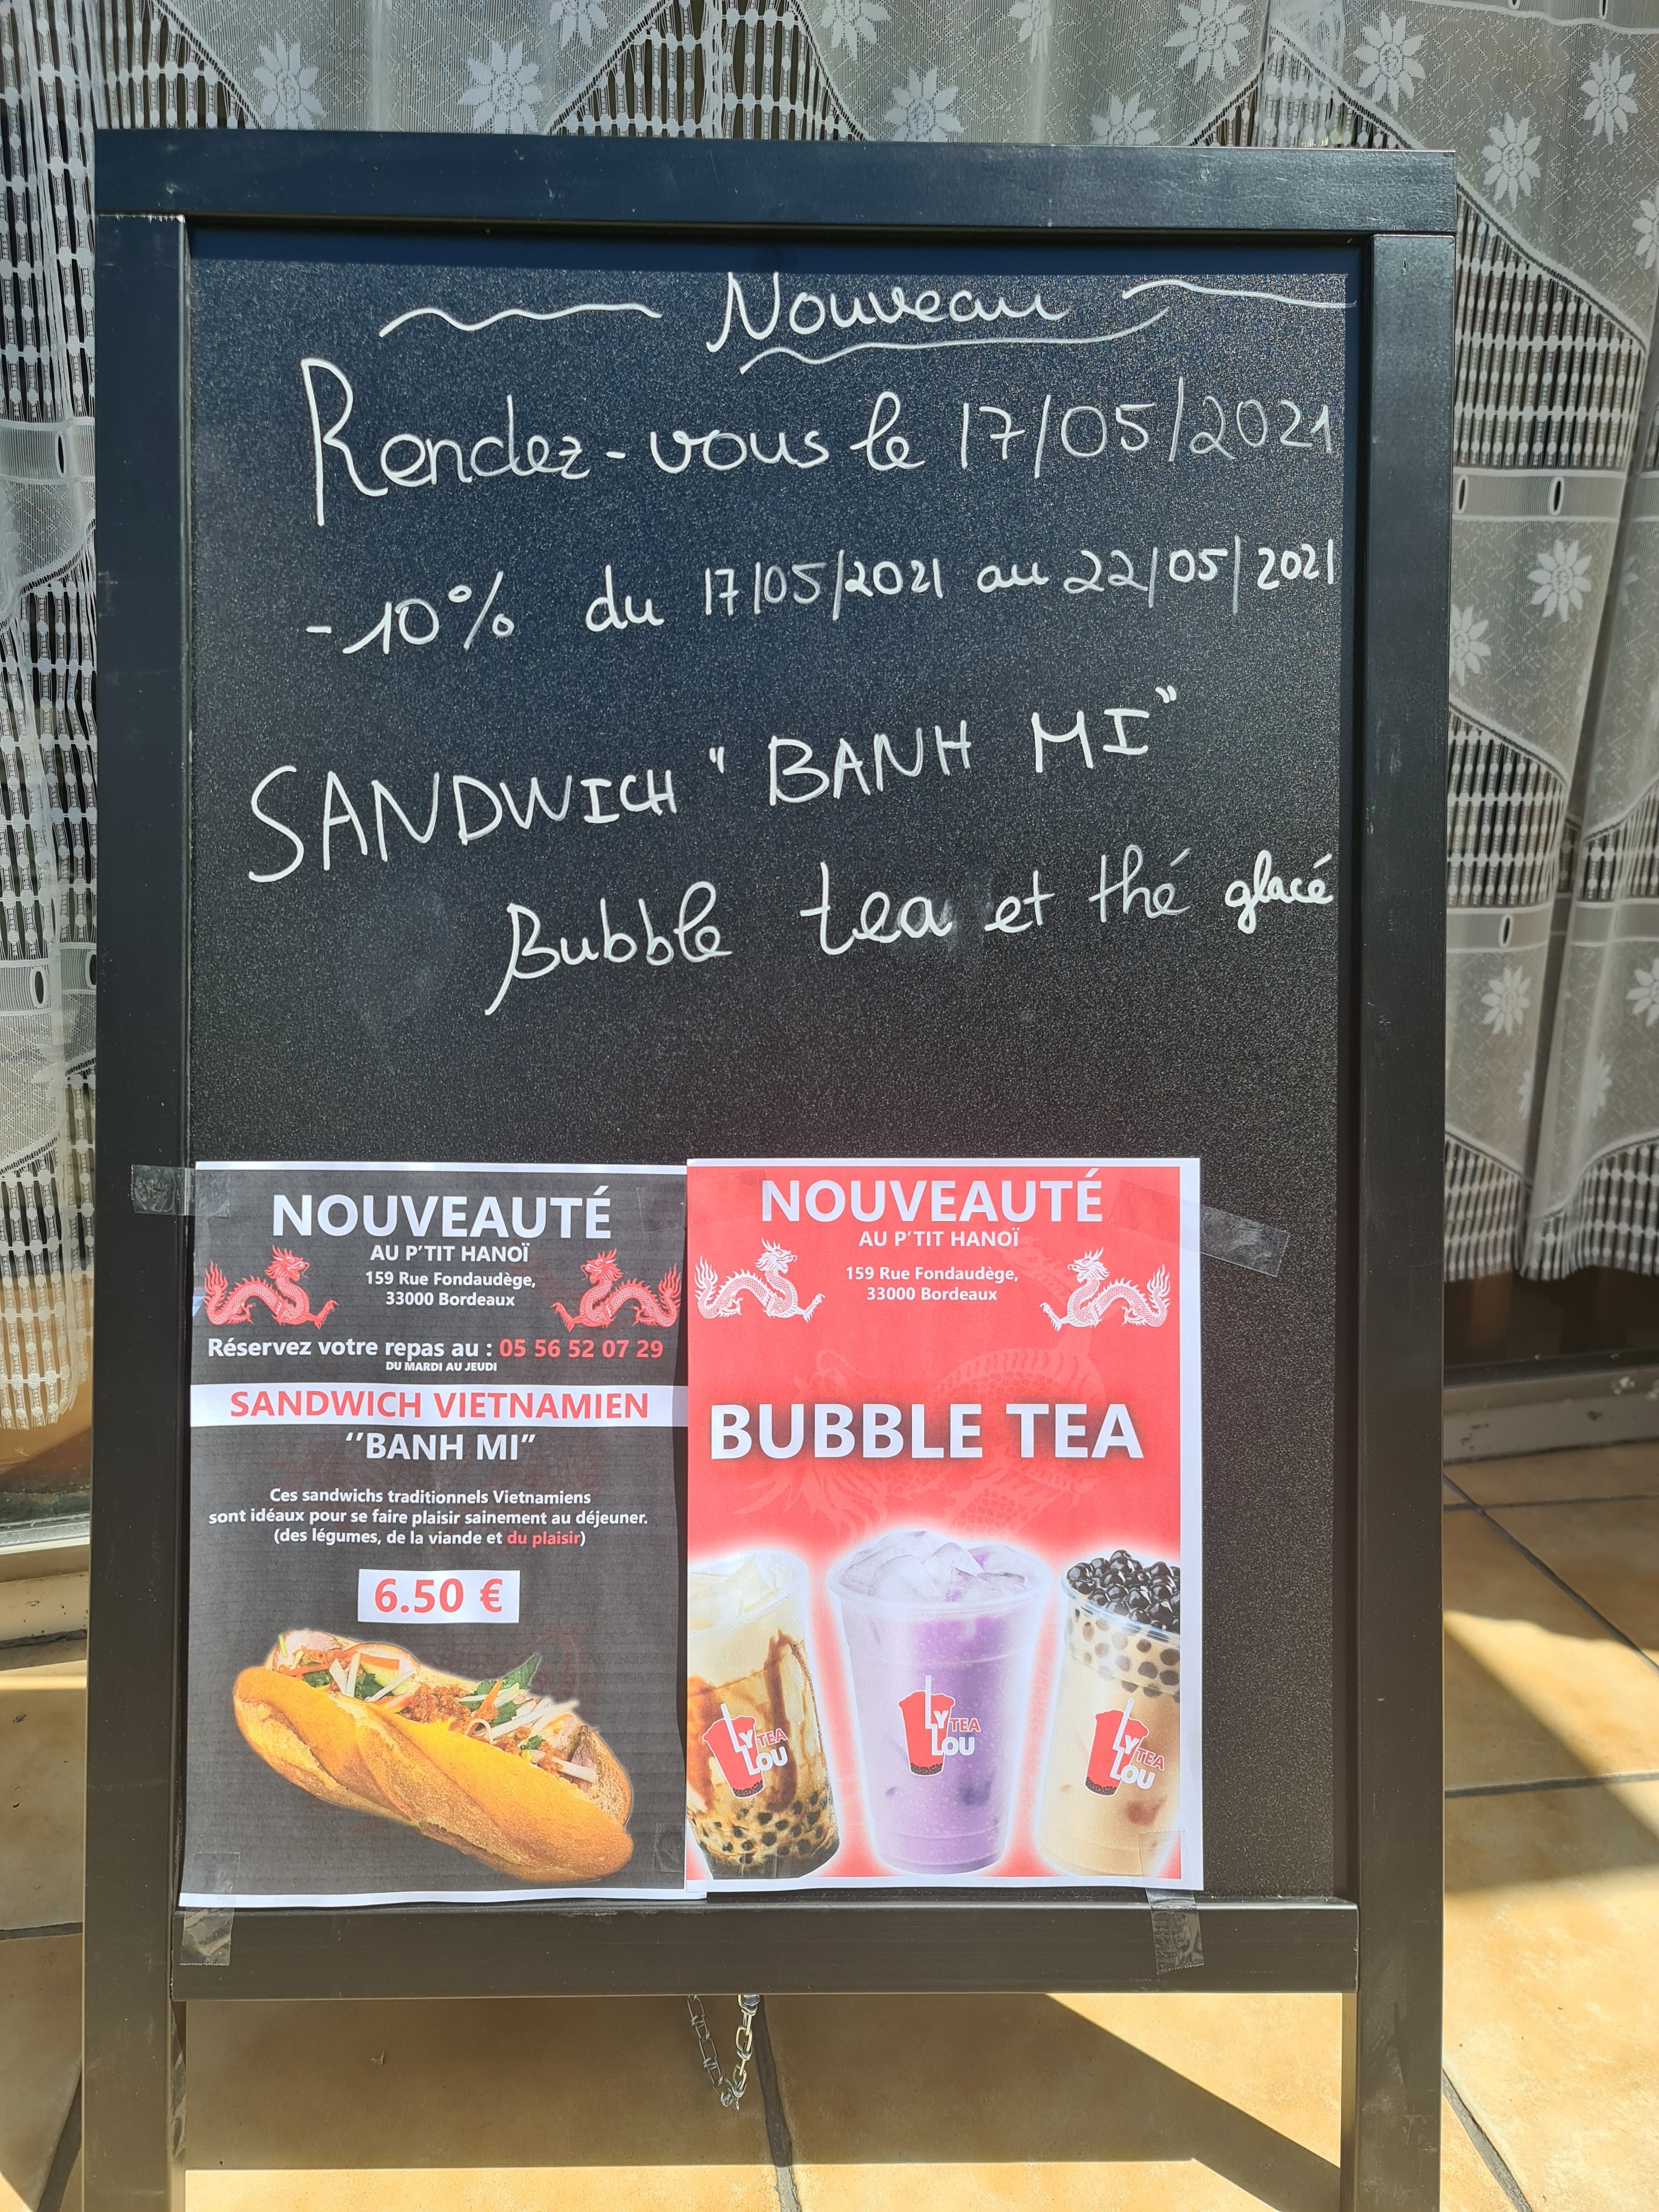 Nouveau
Rendez-vous le 17/05/2021
-10% du 17/05/2021 au 22/05/2021
SANDWICH "BANH MI"
Bubble tea et thé glacé
NOUVEAUTÉ
AU P'TIT HANOÏ
159 Rue Fondaudège,
33000 Bordeaux
Réservez votre repas au : 05 56 52 07 29
DU MARDI AU JEUDI
SANDWICH VIETNAMIEN
‘’BANH MI”
Ces sandwichs traditionnels Vietnamiens
sont idéaux pour se faire plaisir sainement au déjeuner.
(des légumes, de la viande et du plaisir)
6.50 €
NOUVEAUTÉ
AU P'TIT HANOÏ
159 Rue Fondaudège,
33000 Bordeaux
BUBBLE TEA
LY TEA
LOU
LY TEA
LOU
LY TEA
LOU